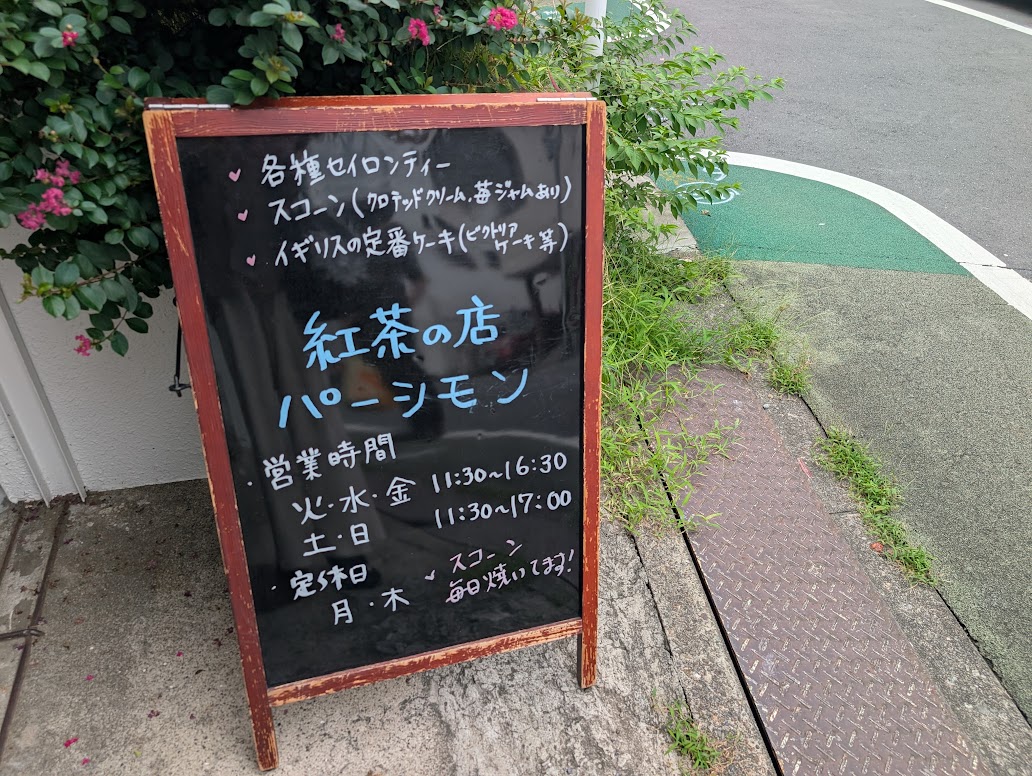 各種セイロンティー
スコーン(クロテッドクリーム、苺ジャムあり)
イギリスの定番ケーキ(ビクトリアケーキ等)
紅茶の店
パーシモン
・営業時間
火・水・金 11:30~16:30
土・日 11:30~17:00
・定休日
月・木
スコーン
毎日焼いてます!